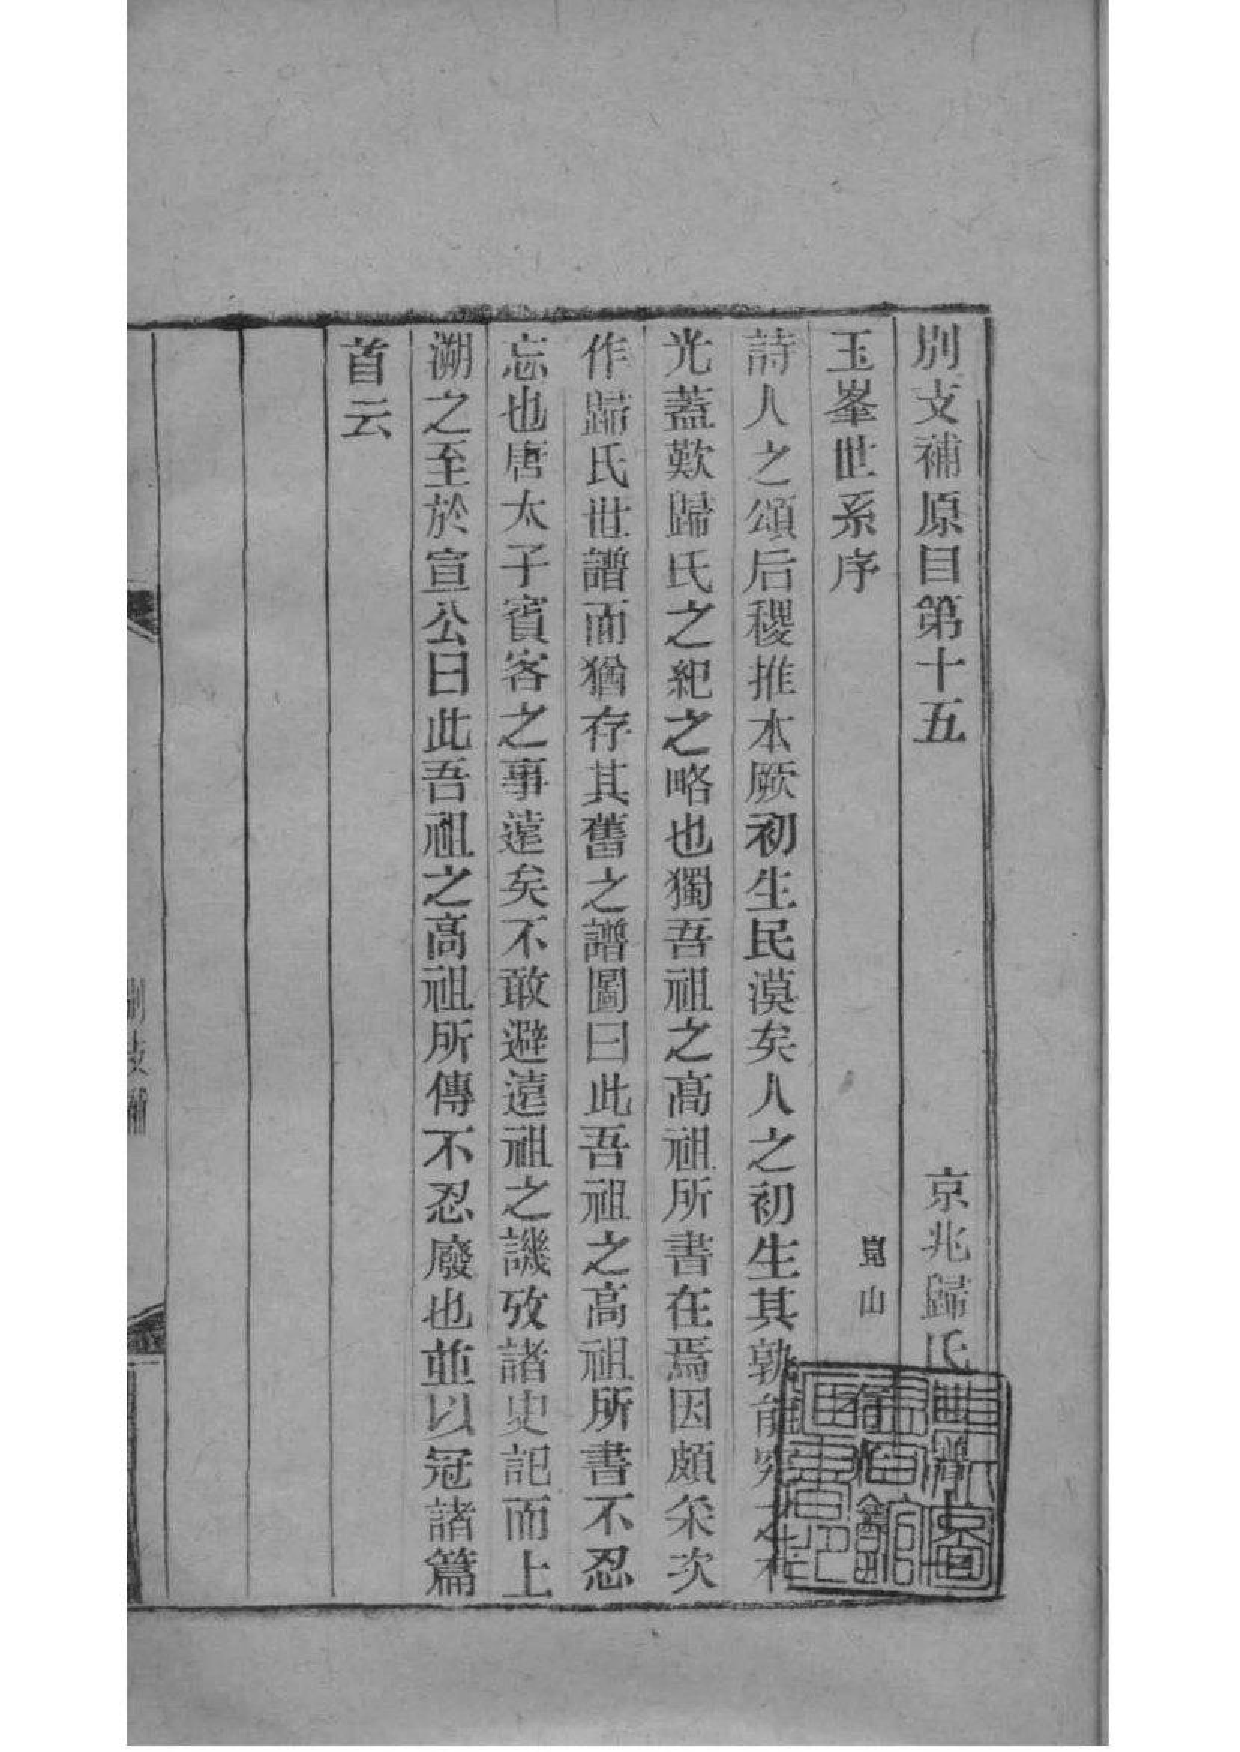 別支補原目第十五 京兆歸氏世譜
玉峯世系序 崑山
詩人之頌后稷推本厥初生民漠矣人之初生其孰能究之
光蓋歎歸氏之紀之略也獨吾祖之高祖所書在焉因頗采次
作歸氏世譜而猶存其舊之譜圖曰此吾祖之高祖所書不忍
忘也唐太子賓客之事遠矣不敢避遠祖之譏攷諸史記而上
溯之至於宣公曰此吾祖之高祖所傳不忍廢也並以冠諸篇
首云
別支補